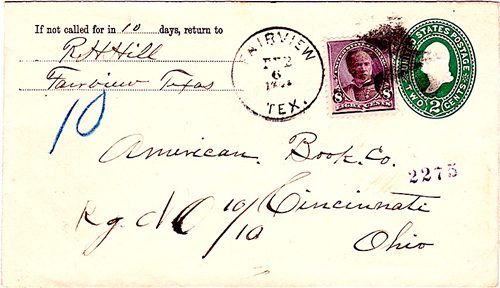 If not called for in 10 days, return to
R.H. Hill
Fairview Texas
FAIRVIEW
6
TEX.
EIGHT CENTS
8 8
UNITED STATES POSTAGE
TWO 2 CENTS
10
American Book Co.
2275
Rg. No 10/10 Cincinnati
Ohio